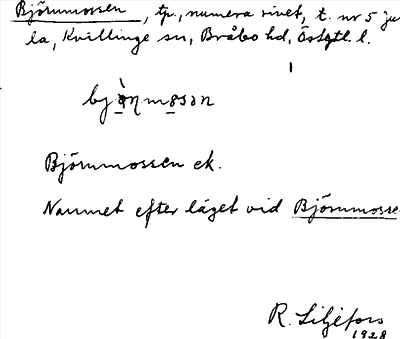 Björnmossen, tp, numera rivet, t. nr 5 ju
la, Kvillinge sn, Bråbo hd, Östgtl. l.
Björnmossen ek.
Namnet efter läget vid Björnmosse
R. Liljefors
1928